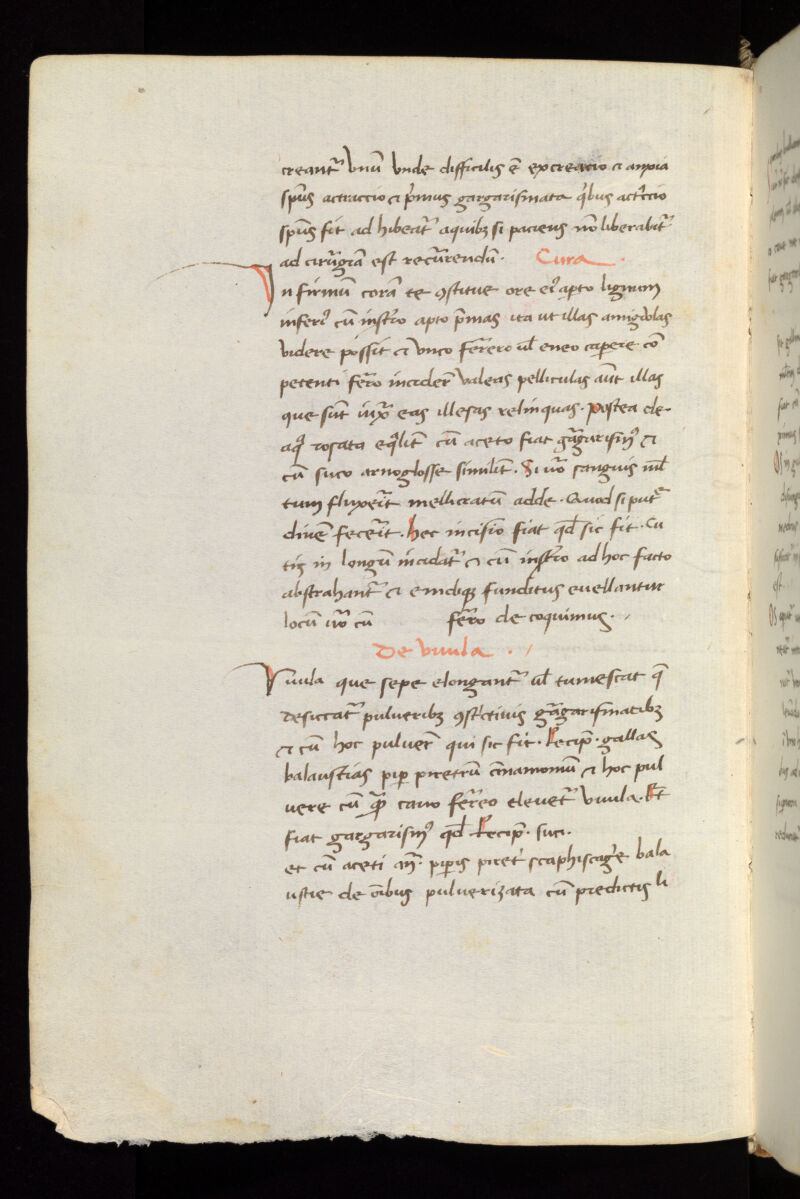 creant᷑ vnū vnde difficilis ē excreacio ⁊ anxia
sp̄us actraccio ⁊ p̄mus gargarismata q̄bus actͥccio
sp̄us fit ad hibeat᷑ aquibꝫ si paciens nō liberabit᷑
ad cirurgiā est recurrendū. Cura
Infirmū corā te ꝯstitue ore eiꝰ apto lignum
inferiꝰ cū instr̄o apto p̄mas ita ut illas amigdolas
videre possit ⁊ vnco ferreo ul̄ eneo capere cō
petenti ferro incider̄ valeas pelliculas aūt illas
que sūt iuxa᷑ eas illesas relinquas. Postea de
aq̄ rosata eq̄lit̄ cū aceto fiat gargarismꝰ ⁊
cū suco arnoglosse similit̄. Si uͦo sanguis ml̄
tum fluxerit mellicratū adde. Quod si put᷑
diuē fecerit. hec incisio fiat qd̄ sic fit. Cu
tis in longū incidat᷑ ⁊ cū instr̄o ad hoc facto
abstrahant᷑ ⁊ emdiqꝫ funditus euellantur
locū uͦo cū ferro de coquimus.
De vuula.
Vuula que sepe elongant᷑ ul̄ tumescat q̄
desiccat᷑ pulueribꝫ ꝯstͥctiuis gargarismatibꝫ
⁊ cū hoc puluer̄ qui sic fit. Recip̄. gallas
balaustias pip̄ piretrū cīnamomū ⁊ hoc pul
uere cū cauo ferreo eleuet᷑ vuula. Et
fiat gargarismꝰ qd̄ Recip̄. suci.
et cū aceti an̄. pip̄is piret᷑ scaphisagͥe bala
ustie de oībus puluerizata cū predictis li